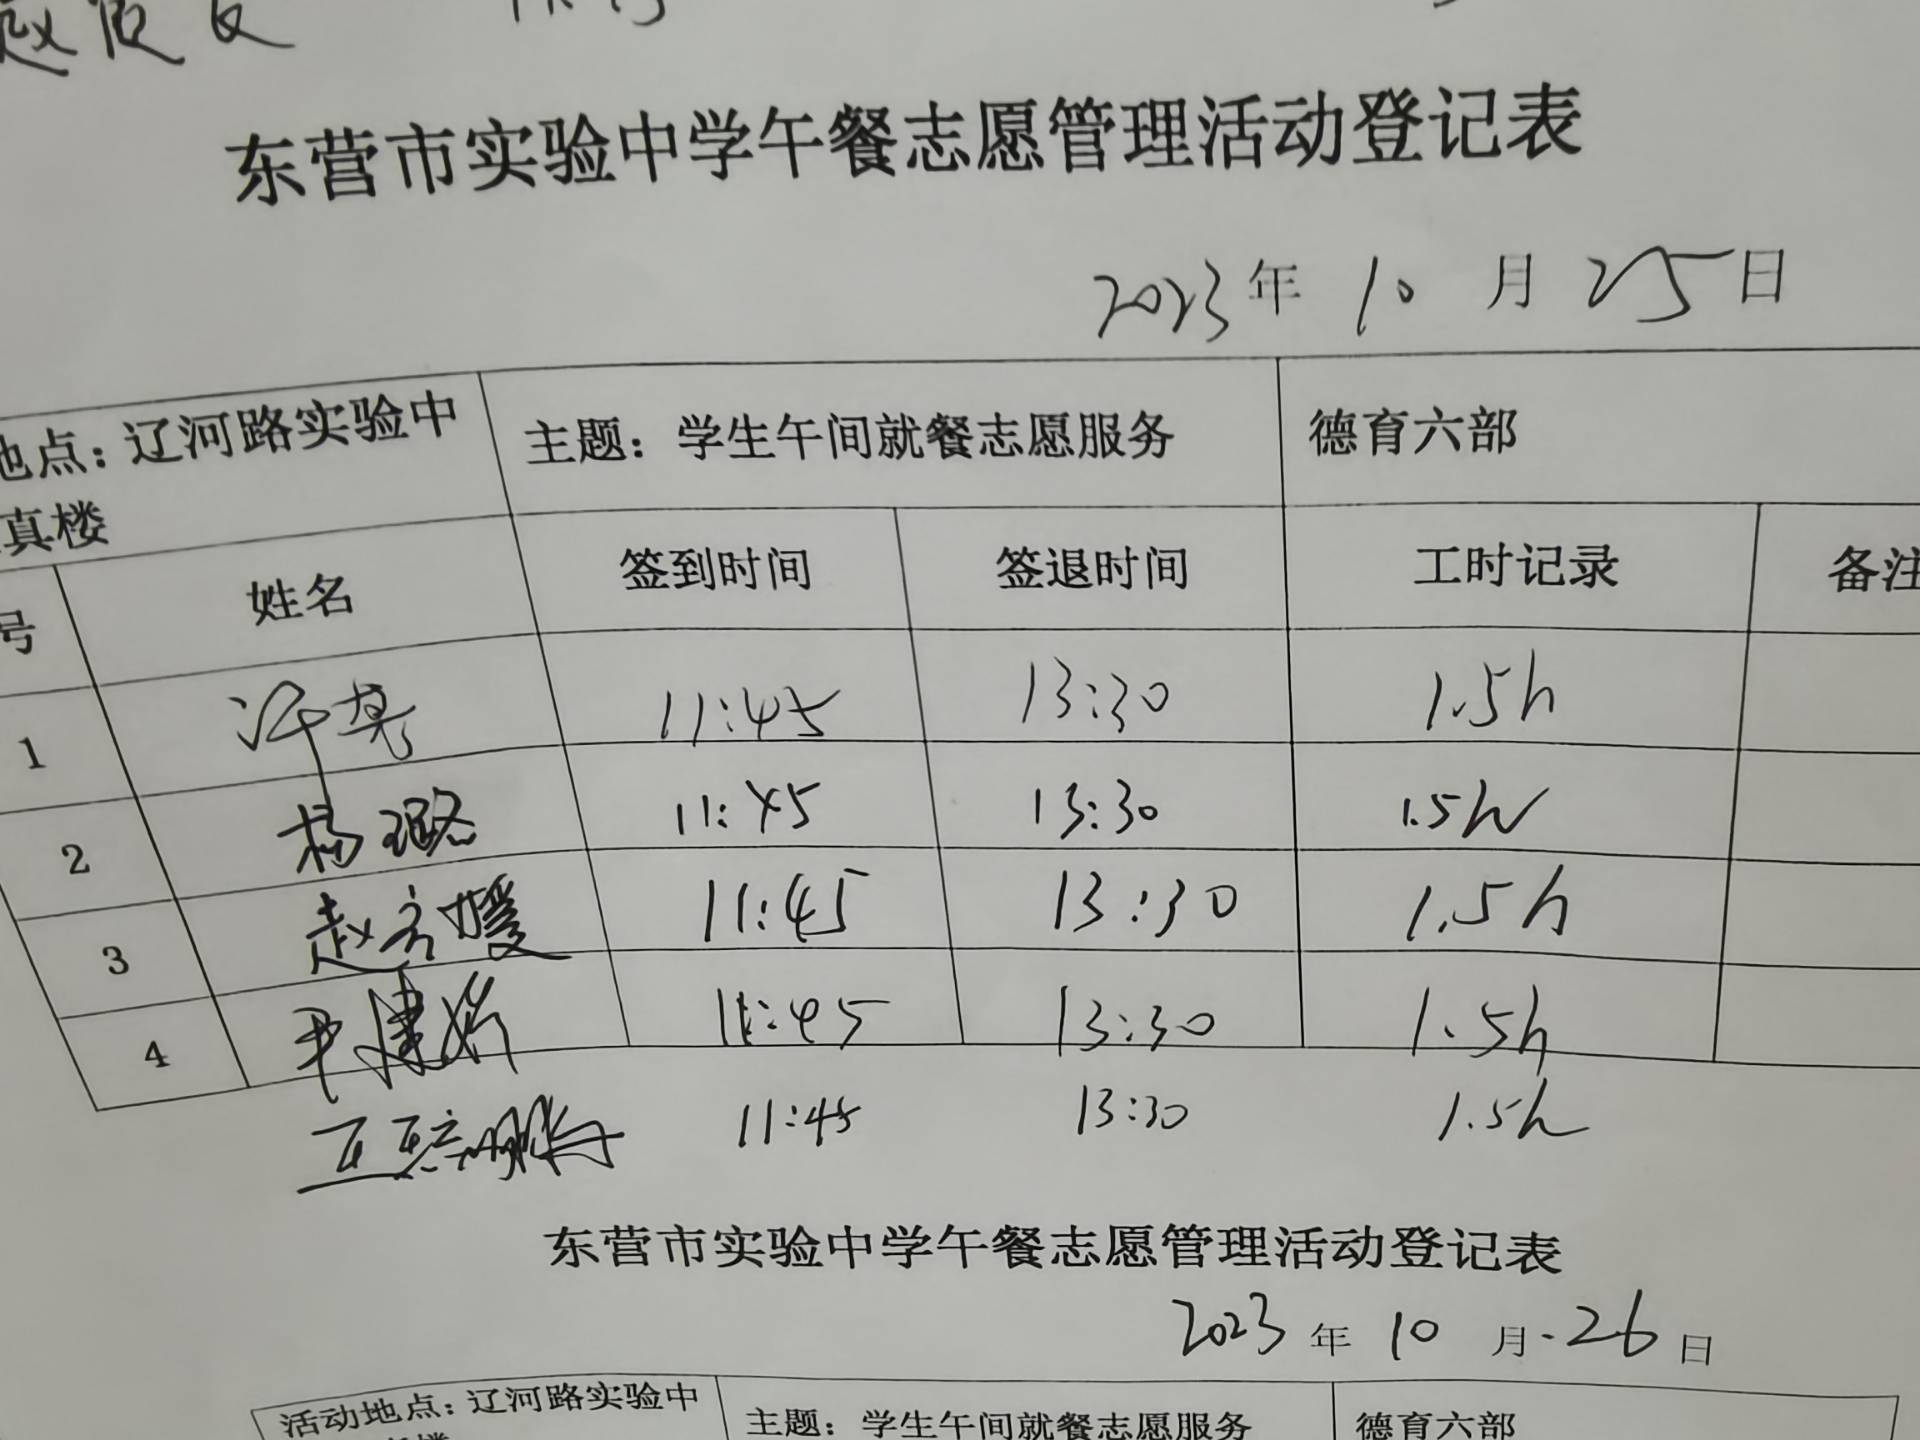 东营市实验中学午餐志愿管理活动登记表
2023年 10 月 25日
地点：辽河路实验中 主题：学生午间就餐志愿服务 德育六部
真楼
号 姓名 签到时间 签退时间 工时记录 备注
1 11:45 13:30 1.5h
2 杨璐 11:45 13:30 1.5h
3 赵方媛 11:45 13:30 1.5h
4 11:45 13:30 1.5h
11:45 13:30 1.5h
东营市实验中学午餐志愿管理活动登记表
2023 年 10 月 26 日
活动地点：辽河路实验中 主题：学生午间就餐志愿服务 德育六部